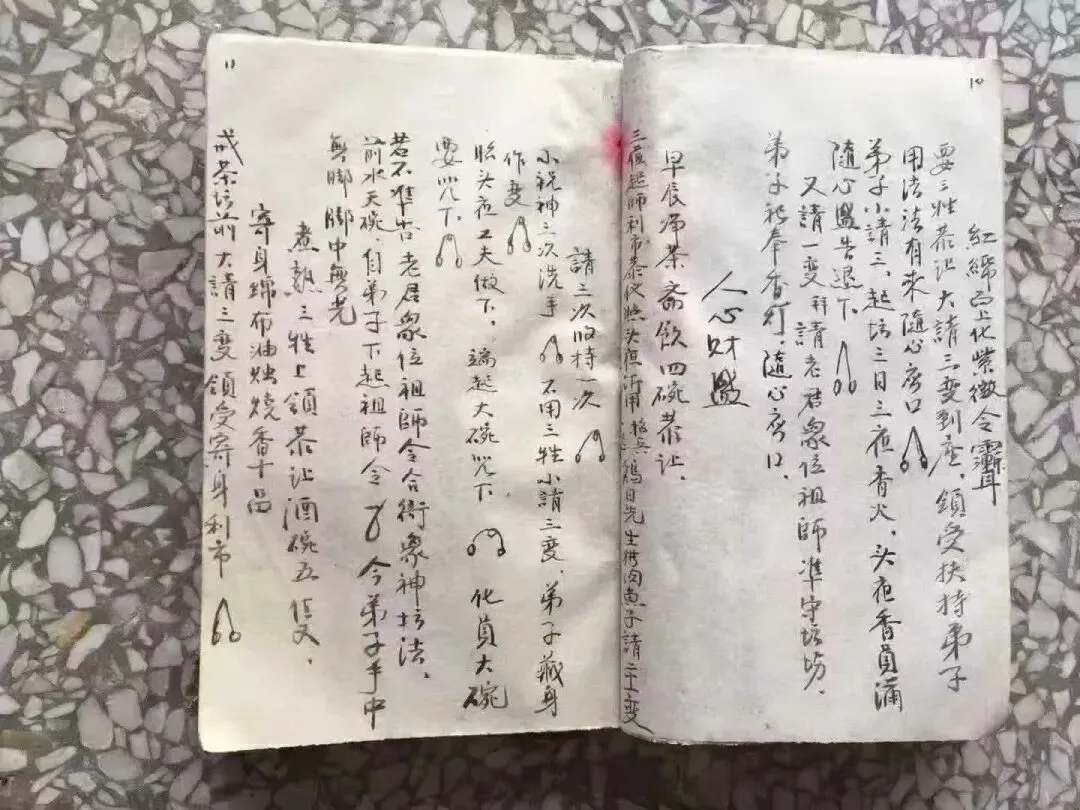 10
紅綿宝上化紫微令
要三牲恭让大請三变到座，領受扶持弟子
用法法有来隨心店口
弟子小請三、起坛三日三夜香火、头夜香員满
隨心㒷告退下
又請一变拜請老君象位祖師准守坛坊，
弟子礼奉香灯，隨心店口
人心财㒷
早辰净茶斋飲四碗恭让．
三夜起師利市恭仪照头夜所用
先生供肉煮子請二十五变
11
請二次收持一次
小祝神三次洗手
不用三牲小請三变，弟子藏身
作变
照头夜工夫做下．端起大碗咒下
化員大碗
要咒下
若不準告老君象位祖師令合衙象神坛法，
前水天碗．自弟子下起祖師令
今弟子手中
無脚脚中無光
煮熟三牲上領恭让酒碗五
寄身綿布油烛燒香
茶坛前大請三变領受寄身利市